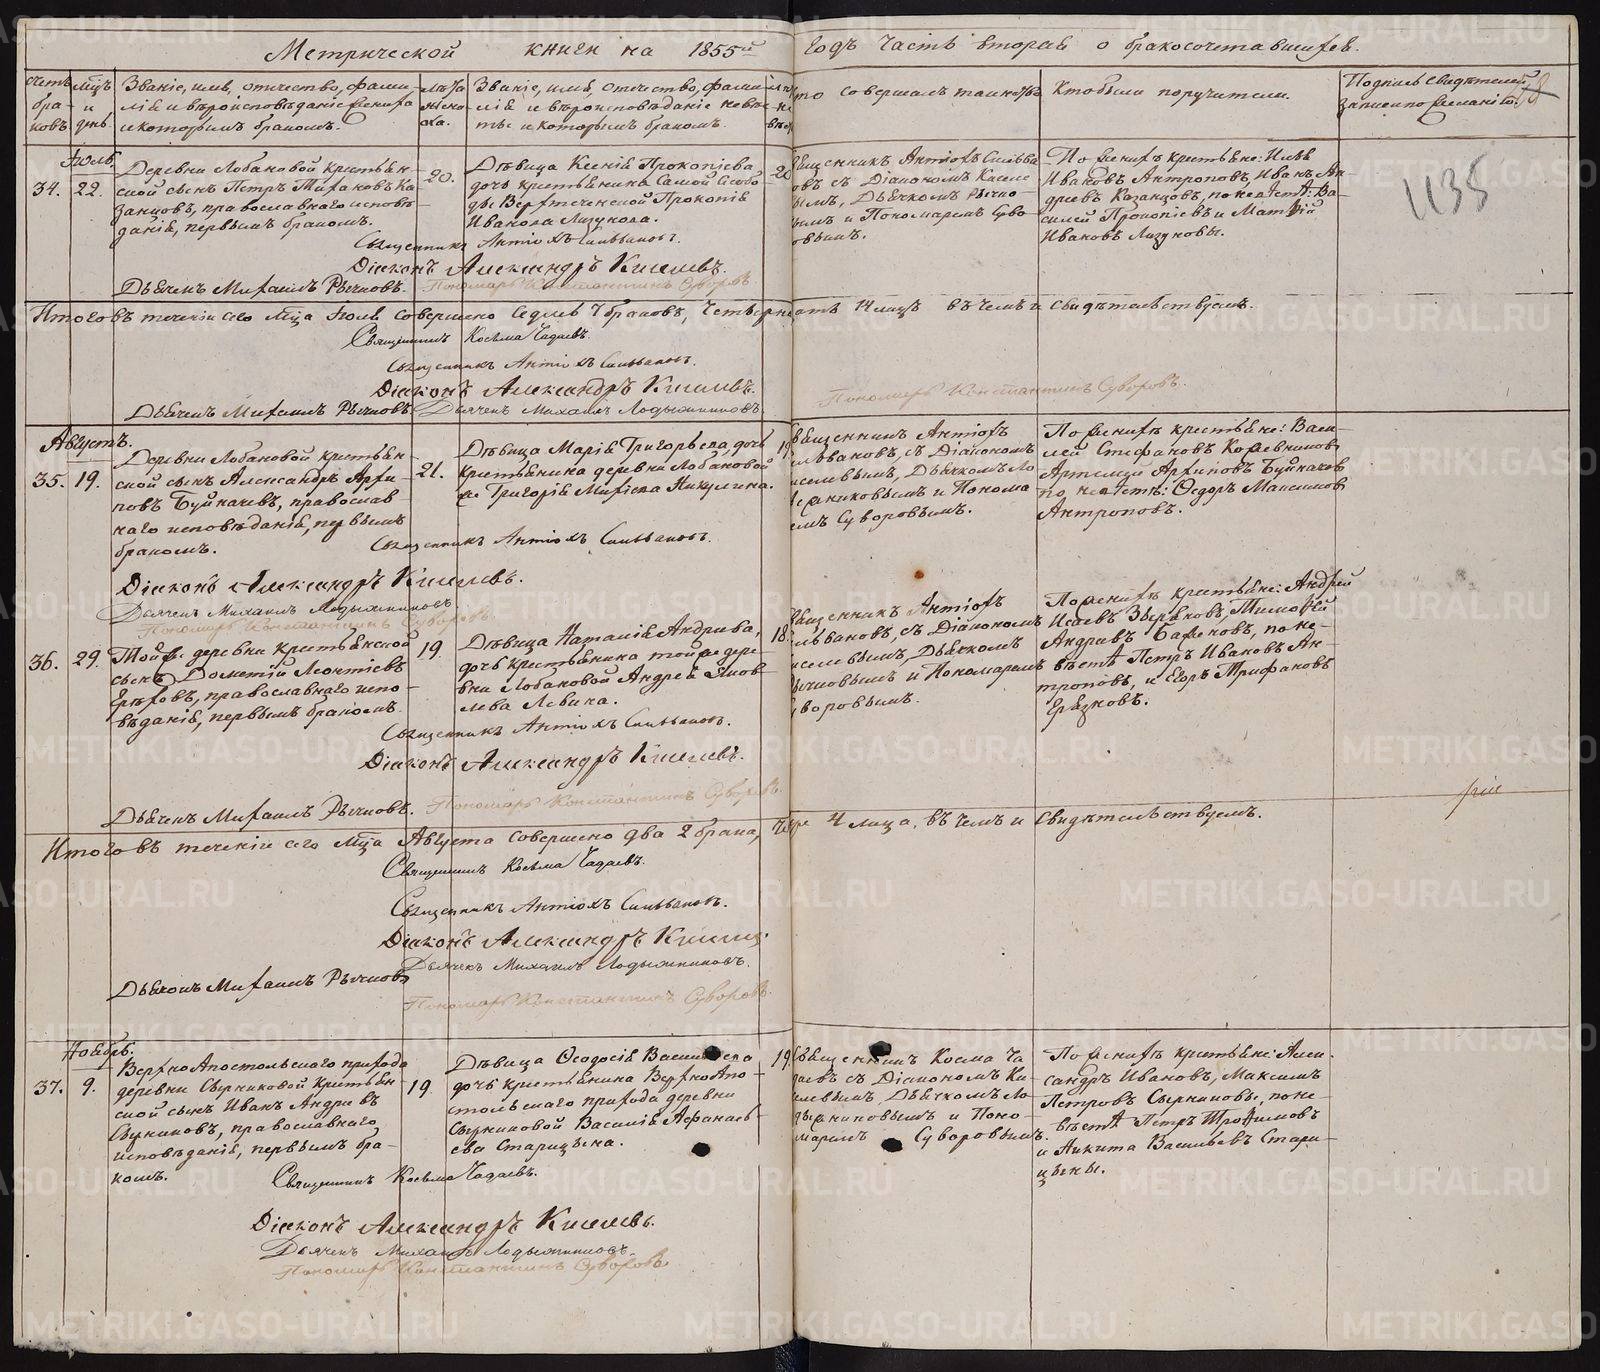 Метрической книги на 1855й годъ часть вторая о бракосочетавшихся.
Званіе, имя, отчество, фами-
лія и вѣроисповѣданіе жениха
и которымъ бракомъ.
Званіе, имя, отчество, фами-
лія и вѣроисповѣданіе невѣс-
ты и которымъ бракомъ.
Кто были поручители.
Подпись свидѣтелей
записи по желанію.
58
1135
Іюль.
34. 22.
Деревни Лобановой крестьян-
ской сынъ Петръ Ка-
занцовъ, православнаго исповѣ-
данія, первымъ бракомъ.
20.
Дѣвица Ксенія Прокопіева
дочь крестьянина
Прокопія
Иванова Лизунова.
20
Священникъ Антіохъ Сильва
овъ съ Діакономъ Кисел
Дьячкомъ Рычко-
вымъ и Пономаремъ Суво-
ровымъ.
По женихѣ крестьяне: Илья
Ивановъ Антроповъ, Иванъ Ан-
дреевъ Казанцовъ, по невѣстѣ Ва-
силей Прокопіевъ и Матвій
Ивановъ Лизуновы.
Священникъ Антіохъ Сильвановъ.
Діаконъ Александръ Киселевъ.
Дьячекъ Михаилъ Рычковъ. Пономарь Константинъ Суворовъ
Итого въ теченіи сего мца Іюля совершено седмь 7 браковъ, четырнадцать 14 лицъ въ чемъ и свидѣтельствуемъ.
Священникъ Косьма Чадаевъ.
Священникъ Антіохъ Сильвановъ.
Діаконъ Александръ Киселевъ.
Пономарь Константинъ Суворовъ.
Дьячекъ Михаилъ Рычковъ Дьячекъ Михаилъ Лодыжниковъ
Августъ.
35. 19.
Деревни Лобановой крестьян-
ской сынъ Александръ Архи-
повъ Буйначевъ, православ
наго исповѣданія, первымъ
бракомъ.
21.
Дѣвица Марія Григорьева, дочь
крестьянина деревни Лобановой
Григорія Никулина.
19
Священникъ Антіохъ
Сильвановъ, съ Діакономъ
Киселевымъ, Дьячкомъ Ло
дыжниковымъ и Понома
ремъ Суворовымъ.
По женихѣ крестьяне: Васи-
лей Стефановъ Кожевниковъ
Артемій Архиповъ Буйначевъ
по невѣстѣ: Ѳедоръ Максимовъ
Антроповъ.
Священникъ Антіохъ Сильвановъ.
Діаконъ Александръ Киселевъ.
Дьячекъ Михаилъ Лодыжниковъ
Пономарь Константинъ Суворовъ.
36. 29.
Той же деревни крестьянской
сынъ Дометій Леонтіевъ
православнаго испо-
вѣданія, первымъ бракомъ.
19.
Дѣвица Наталія Андреева,
дочь крестьянина той же дере-
вни Лобановой Андрея Яков
лева Левина.
18.
Священникъ Антіохъ
Сильвановъ, съ Діакономъ
Киселевымъ, Дьячкомъ
Рычковымъ и Пономаремъ
Суворовымъ.
По женихѣ крестьяне: Андрей
Исаевъ Тимофей
Андреевъ по не-
вѣстѣ Петръ Ивановъ Ан-
троповъ, и Егоръ Трифановъ
Священникъ Антіохъ Сильвановъ.
Діаконъ Александръ Киселевъ.
Дьячекъ Михаилъ Рычковъ. Пономарь Константинъ Суворовъ.
Итого въ теченіи сего мца Августа совершено два 2 брака, четыре 4 лица, въ чемъ и свидѣтельствуемъ.
Священникъ Косьма Чадаевъ.
Священникъ Антіохъ Сильвановъ.
Діаконъ Александръ Киселевъ.
Дьячекъ Михаилъ Лодыжниковъ.
Дьячокъ Михаилъ Рычковъ
Пономарь Константинъ Суворовъ.
Ноябрь.
37. 9.
Верхо Апостольскаго прихода
деревни Сыриковой крестьян-
ской сынъ Иванъ Андреевъ
православнаго
исповѣданія, первымъ бра-
комъ.
19.
Дѣвица Ѳеодосія Васильева
дочь крестьянина Верхо Апо-
стольскаго прихода деревни
Василія Афанась-
ева Старицына.
19.
Священникъ Косма Ча
даевъ съ Діакономъ Ки-
селевымъ, Дьячкомъ Ло
дыжниковымъ и Поно-
маремъ Суворовымъ.
По женихѣ крестьяне: Алек-
сандръ Ивановъ, Максимъ
Петровъ по не-
вѣстѣ Петръ Трофимовъ
и Никита Васильевъ Стари-
цыны.
Священникъ Косьма Чадаевъ.
Діаконъ Александръ Киселевъ.
Дьячекъ Михаилъ Лодыжниковъ.
Пономарь Константинъ Суворовъ
METRIKI.GASO-URAL.RU